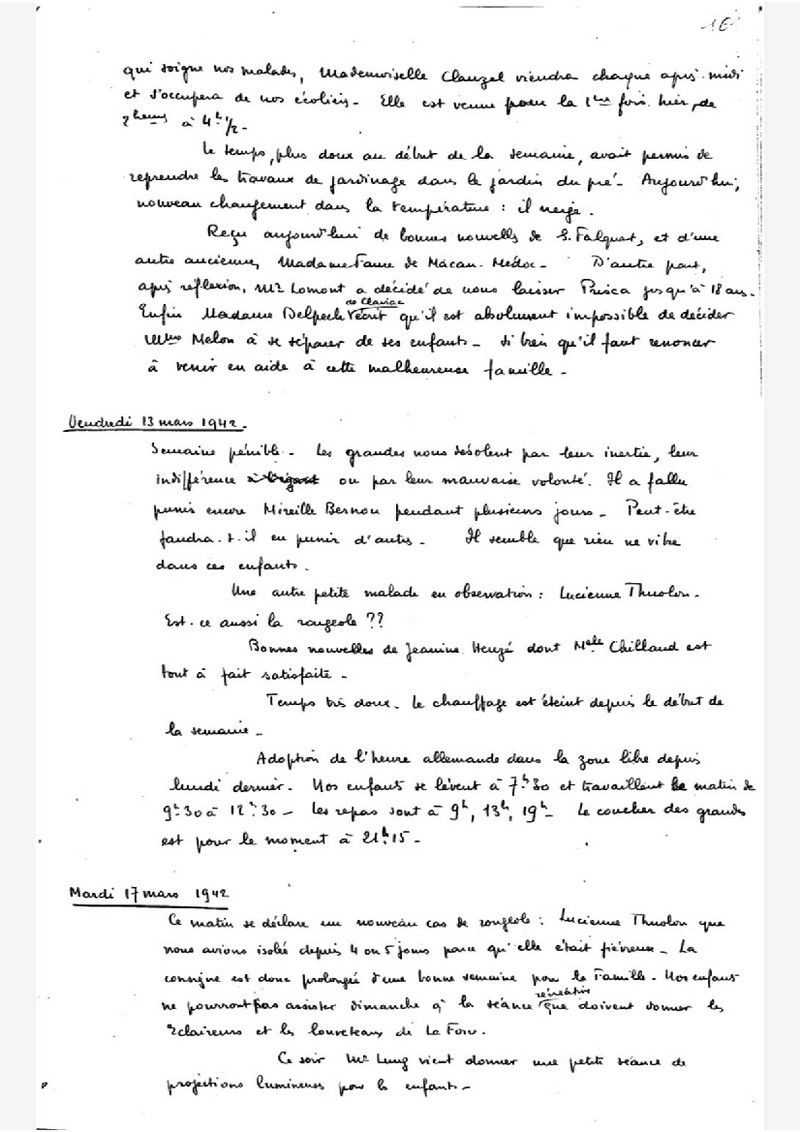 16
qui soigne nos malades, Mademoiselle Clauzel viendra chaque après-midi
et s'occupera de nos écoliers - Elle est venue pour la 1ère fois hier, de
2 heures à 4h 1/2 -
Le temps, plus doux au début de la semaine, avait permis de
reprendre les travaux de jardinage dans le jardin du pré - Aujourd'hui,
nouveau changement dans la température : il neige.
Reçu aujourd'hui de bonnes nouvelles de S. Falquet, et d'une
autre ancienne, Madame Faure de Macau-Médoc - D'autre part,
après réflexion, Mr Lomont a décidé de nous laisser Prisca jusqu'à 18 ans.
de Clairac
Enfin Madame Delpech écrit qu'il est absolument impossible de décider
Mme Melon à se séparer de ses enfants - si bien qu'il faut renoncer
à venir en aide à cette malheureuse famille -
Vendredi 13 mars 1942 -
Semaine pénible - Les grandes nous désolent par leur inertie, leur
indifférence ou par leur mauvaise volonté. Il a fallu
punir encore Mireille Bernou pendant plusieurs jours - Peut-être
faudra-t-il en punir d'autres - Il semble que rien ne vibre
dans ces enfants.
Une autre petite malade en observation : Lucienne Thuolon -
Est-ce aussi la rougeole ??
Bonnes nouvelles de Jeanine Heuzé dont Melle Chillaud est
tout à fait satisfaite -
Temps très doux - Le chauffage est éteint depuis le début de
la semaine -
Adoption de l'heure allemande dans la zone libre depuis
lundi dernier - Nos enfants se lèvent à 7h30 et travaillent le matin de
9h30 à 12h30 - Les repas sont à 9h, 13h, 19h - Le coucher des grandes
est pour le moment à 21h15 -
Mardi 17 mars 1942
Ce matin se déclare un nouveau cas de rougeole : Lucienne Thuolon que
nous avions isolée depuis 4 ou 5 jours parce qu'elle était fiévreuse - La
consigne est donc prolongée d'une bonne semaine pour la Famille - Nos enfants
récréative
ne pourront pas assister dimanche à la séance que doivent donner les
Eclaireurs et les louveteaux de La Force.
Ce soir Mr Lung vient donner une petite séance de
projections lumineuses pour les enfants -